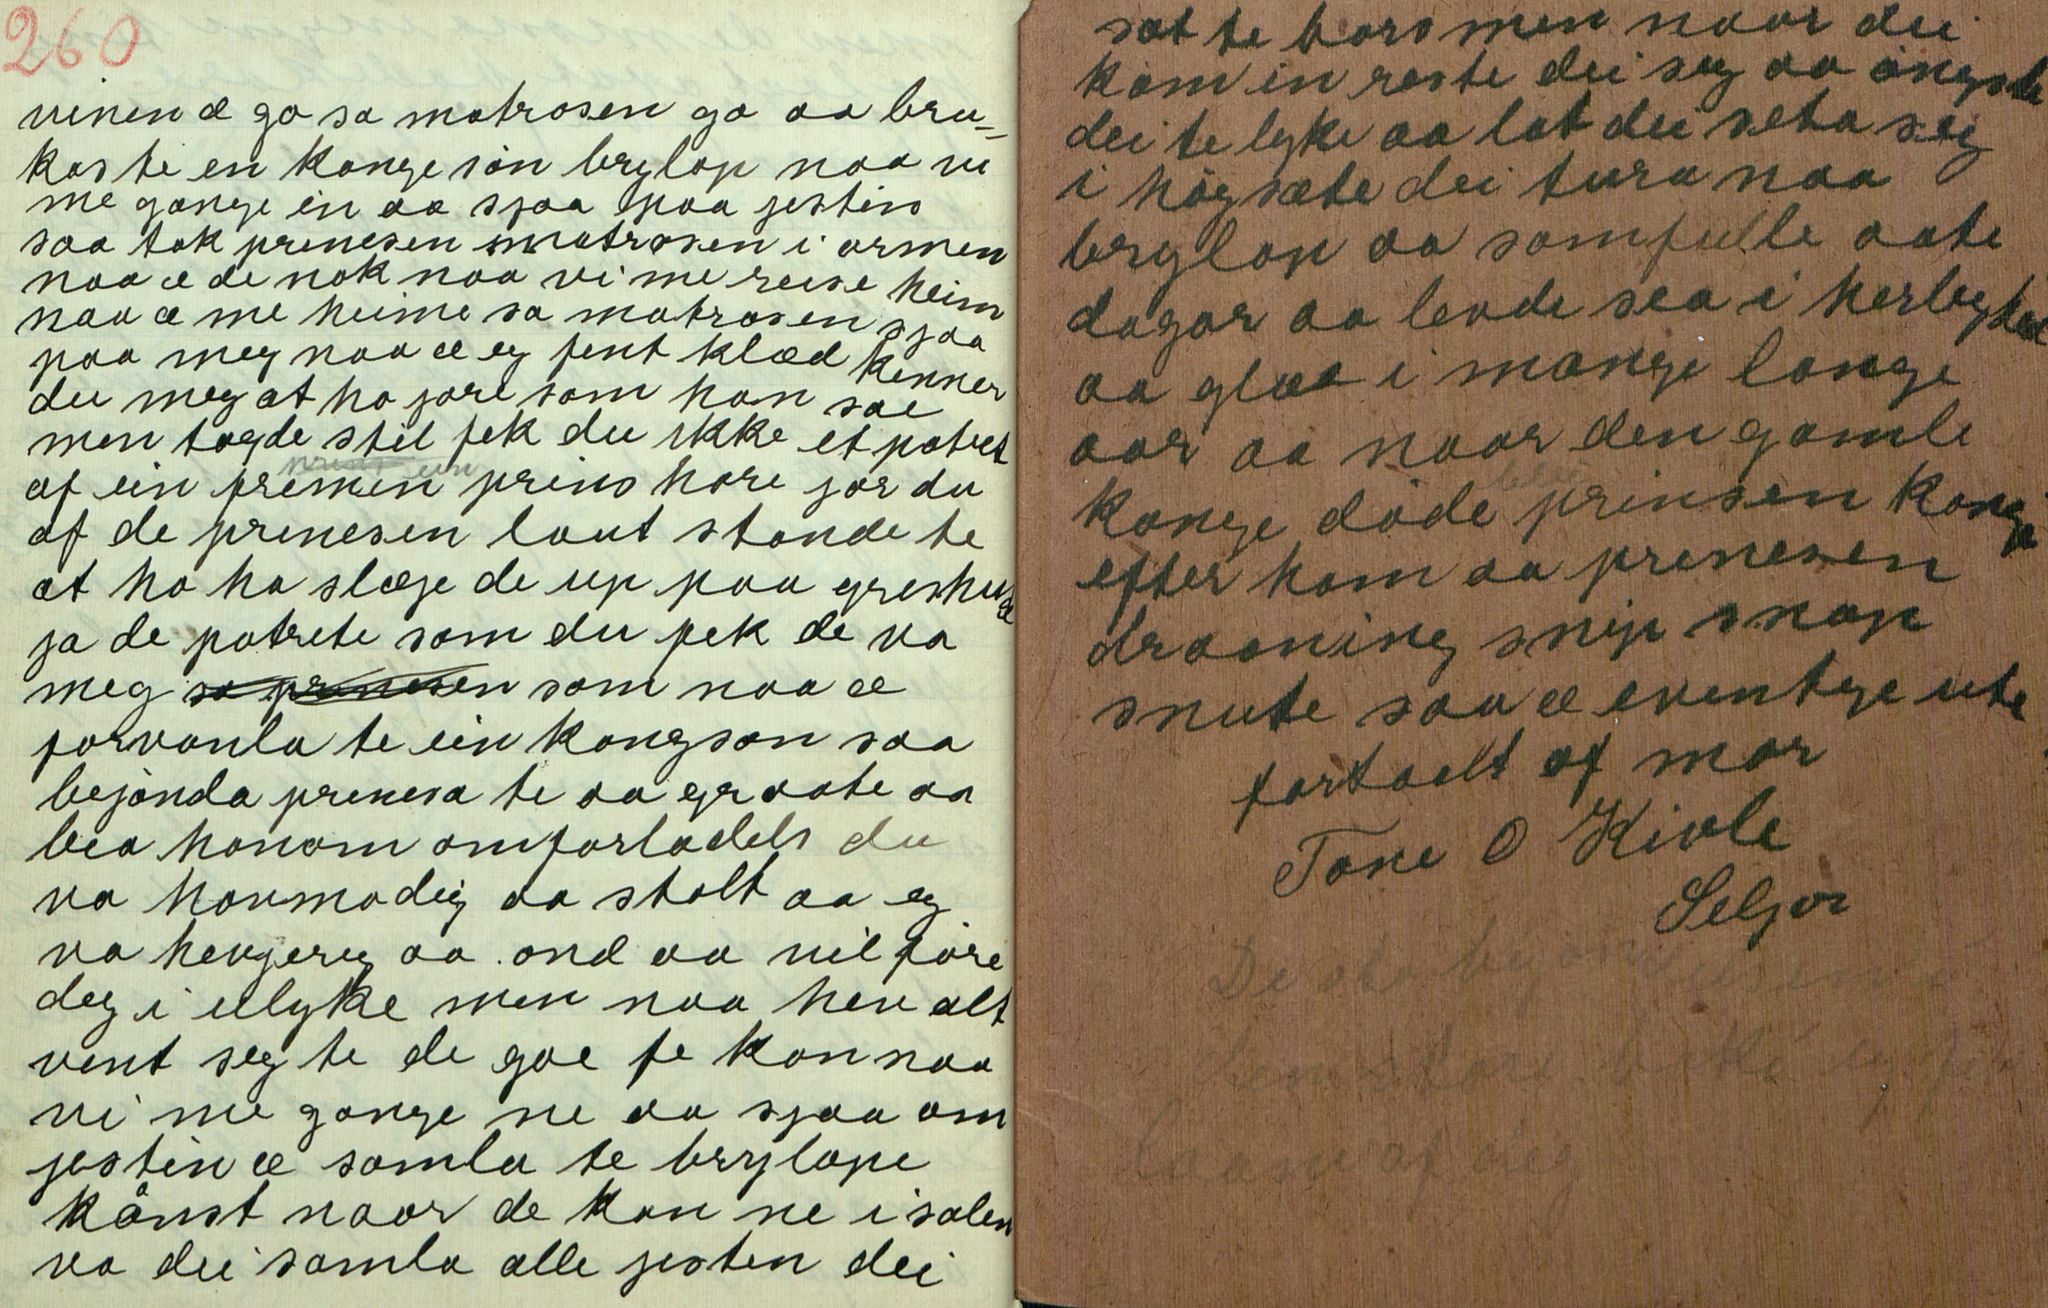 260
vinen æ go sa matrosen go aa bru-
kas te en kongesøn brylop naa vi
me gange in aa sjaa paa jestins
saa tok prinesen matrosen i armen
naa æ de nok naa vi me reise heim
naa æ me heime sa matrosen sjaa
paa meg naa æ eg fint klæd kenner
du meg at ho jore som han sae
men tagde stil fek du ikke et patret
af ein prins hore jor du
af de prinesen laut stande te
at ho ha slæje de up paa greshuse
ja de patrete som du fek de va
meg sa prinesen som naa æ
forvanla te ein kongson saa
bejønda prinesa te aa graate aa
bea honom omforladels du
va hovmodig aa stolt aa eg
va hevjereg aa ond aa vil føre
deg i ulyke men naa hev alt
vent seg te de goe fe kon naa
vi me gange ne aa sjaa om
jestin æ samla te brylope
kånst naar de kon ne i salen
va dei samla alle jesten dei
sat te bors men naar dei
kom in reste dei seg aa øngste
dei te lyke aa lot dei seta seg
i høgsæte dei tura naa
brylop aa somfulle aate
dagar aa levde sea i herlighed
aa glæa i mange lange
aar aa naar den gamle
konge døde blei prinsen konge
efter ham aa prinesen
droning snip snap
snute saa æ eventye ute
fortaalt af mor
Tone O Kivle
Seljor
De
af deg